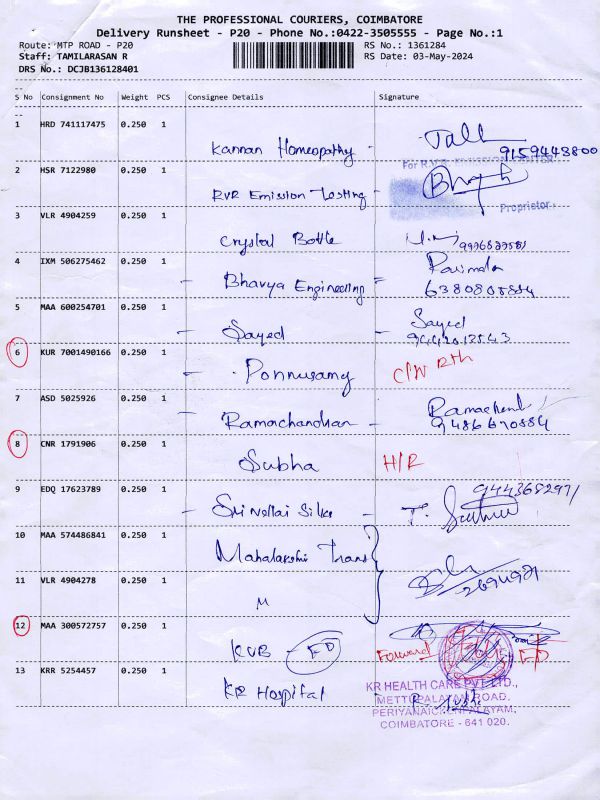 THE PROFESSIONAL COURIERS, COIMBATORE
Delivery Runsheet - P20 - Phone No.:0422-3505555 - Page No.:1
Route: MTP ROAD - P20 RS No.: 1361284
Staff: TAMILARASAN R RS Date: 03-May-2024
DRS No.: DCJB136128401
S No Consignment No Weight PCS Consignee Details Signature
1 HRD 741117475 0.250 1
Kannan Homeopathy - 9159448800
2 HSR 7122980 0.250 1 For R.V.R. EMISSION
RVR Emission Testing -
Proprietor
3 VLR 4904259 0.250 1
Crystal Bottle
4 IXM 506275462 0.250 1
- Bhavya Engineering - 6380808884
5 MAA 600254701 0.250 1 Sayed
- Sayed -
6 KUR 7001490166 0.250 1
- Ponnusamy C/N Rth
7 ASD 5025926 0.250 1
- Ramachandran - 9486670884
8 CNR 1791906 0.250 1
Subha H/R
9 EDQ 17623789 0.250 1 9443682971
- Sri Nellai Silks - T.
10 MAA 574486841 0.250 1
Mahalakshmi Trans
11 VLR 4904278 0.250 1
"
12 MAA 300572757 0.250 1
KVB - FD Forward FD
13 KRR 5254457 0.250 1
KR Hospital
KR HEALTH CARE PVT LTD.,
METTUPALAYAM ROAD,
PERIYANAICKENPALAYAM,
COIMBATORE - 641 020.